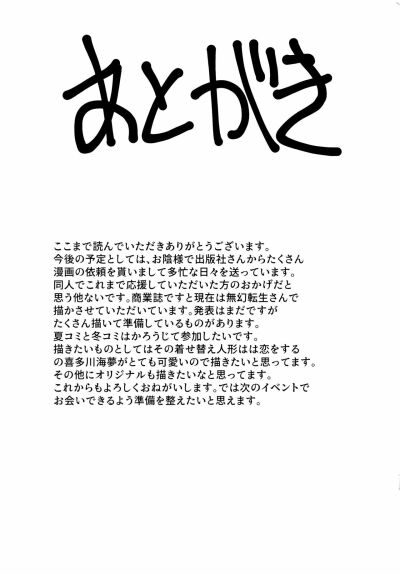 あとがき
ここまで読んでいただきありがとうございます。
今後の予定としては、お陰様で出版社さんからたくさん
漫画の依頼を貰いまして多忙な日々を送っています。
同人でこれまで応援していただいた方のおかげだと
思う他ないです。商業誌ですと現在は無幻転生さんで
描かさせていただいています。発表はまだですが
たくさん描いて準備しているものがあります。
夏コミと冬コミはかろうじて参加したいです。
描きたいものとしてはその着せ替え人形はは恋をする
の喜多川海夢がとても可愛いので描きたいと思ってます。
その他にオリジナルも描きたいなと思ってます。
これからもよろしくおねがいします。では次のイベントで
お会いできるよう準備を整えたいと思えます。